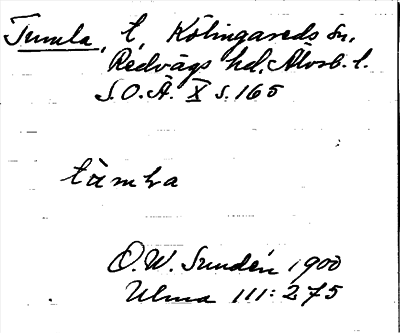 Tumla, l, Kölingareds sn,
Redvägs hd, Älvsb. l.
S.O.Ä. X s. 165
tùmla
O.W. Sundén 1900
Ulma 111:275